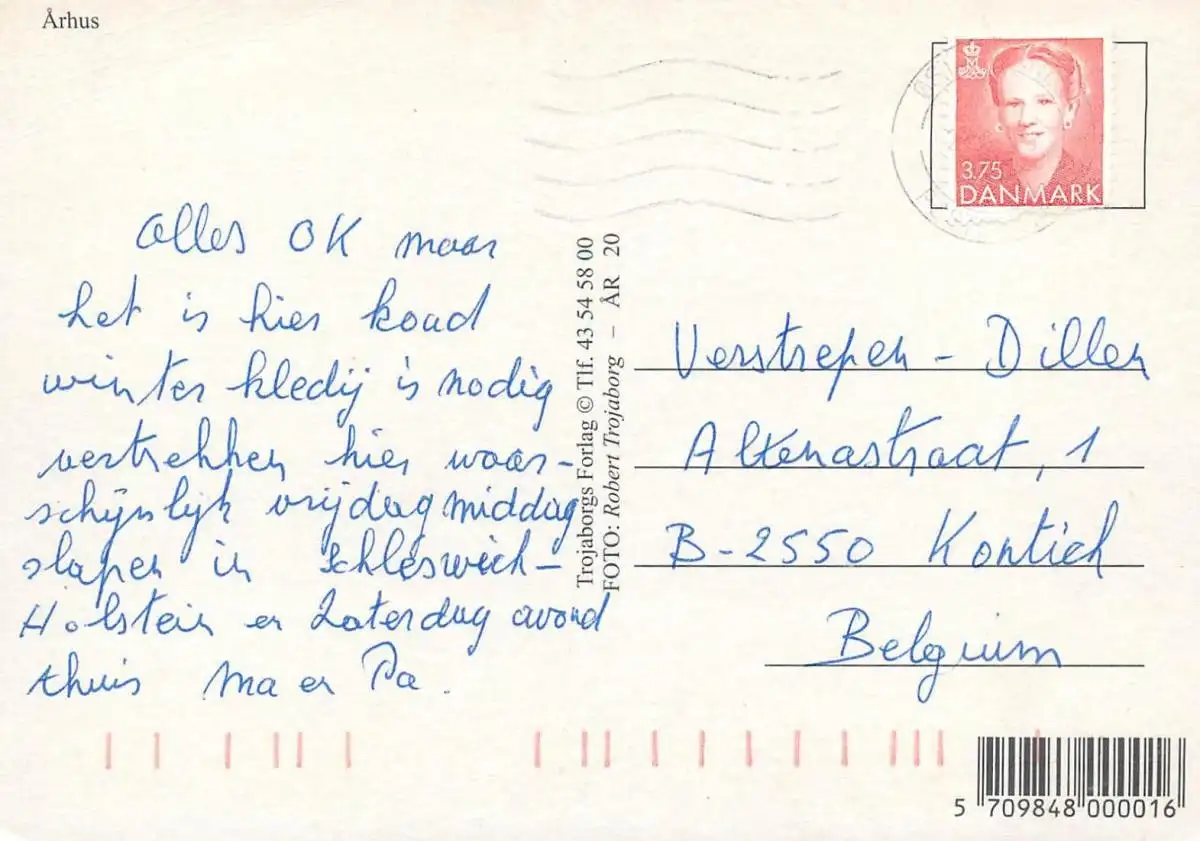 Århus
3.75
DANMARK
Alles OK maar
het is hier koud
winter kledij is nodig
vertrekken hier waar-
schijnlijk vrijdag middag
slapen in Schleswich-
Holstein en Zaterdag avond
thuis Ma en Pa.
Trojaborgs Forlag © Tlf. 43 54 58 00
FOTO: Robert Trojaborg – ÅR 20
Verstrepen - Dillen
Altenastraat, 1
B-2550 Kontich
Belgium
5 709848 000016